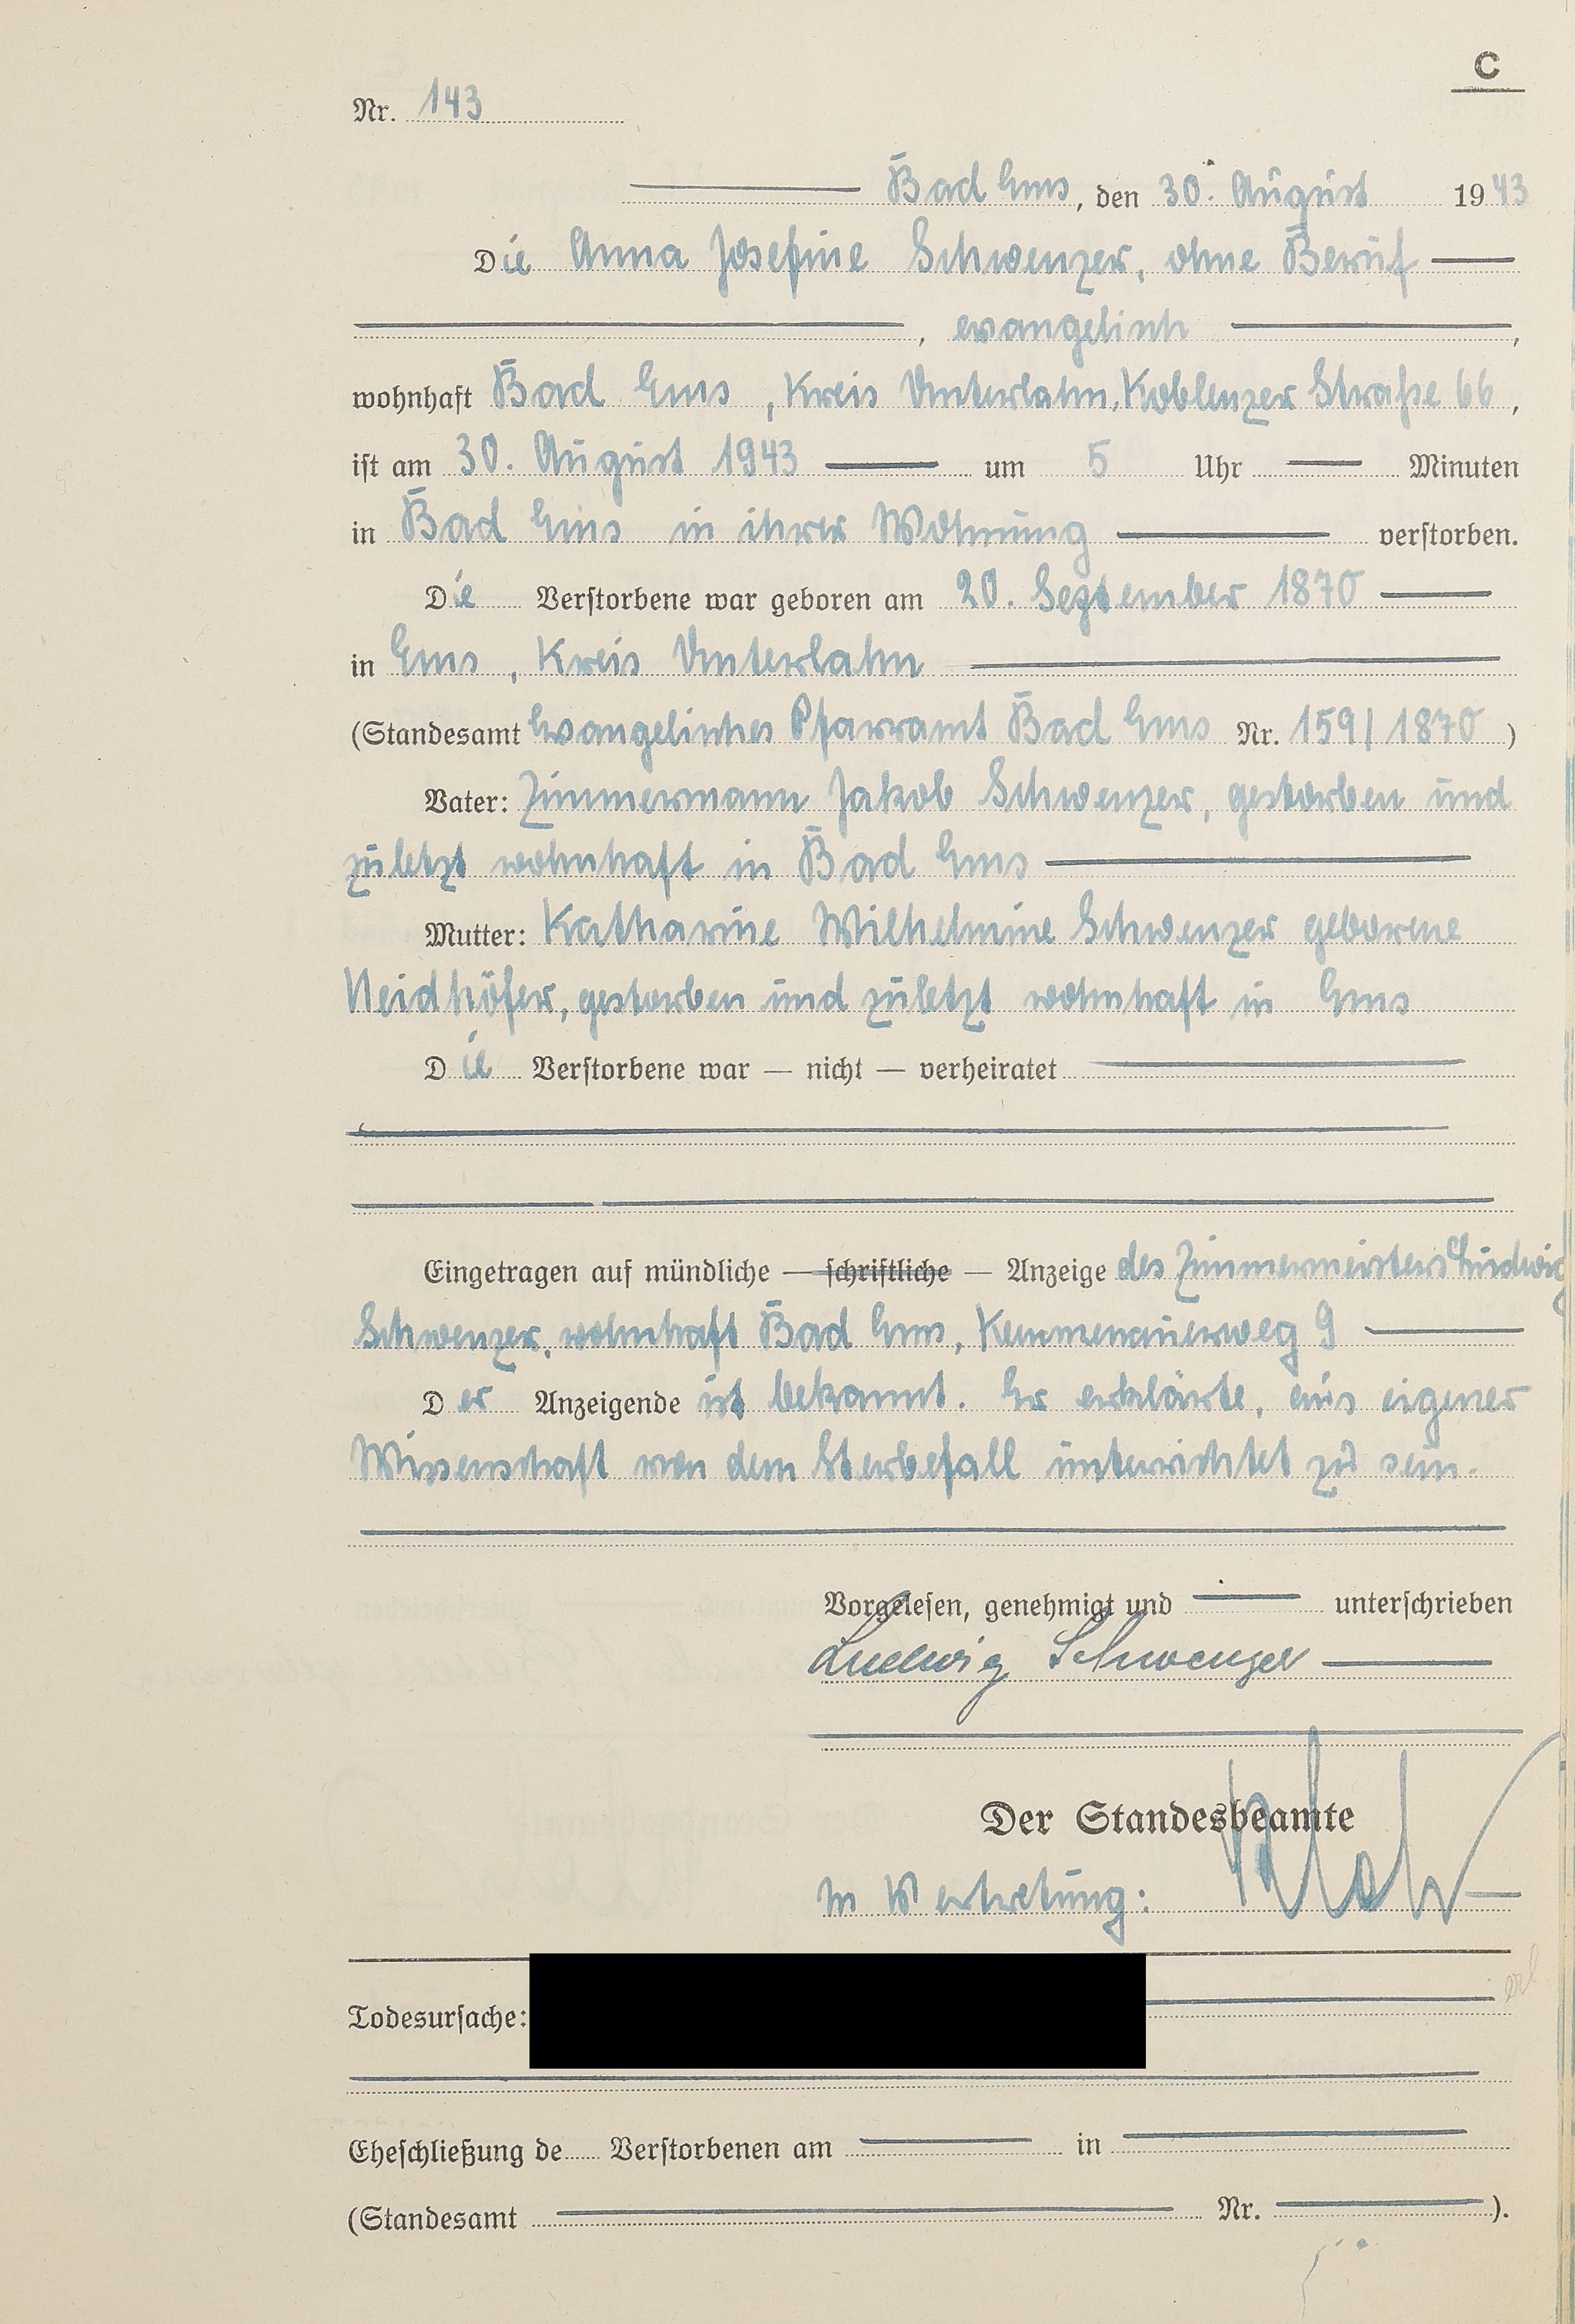 C
Nr. 143
Bad Ems, den 30. August 1943
Die Anna Josefine Schwenzer, ohne Beruf
, evangelisch ,
wohnhaft Bad Ems, Kreis Unterlahn, Koblenzer Straße 66,
ist am 30. August 1943 um 5 Uhr Minuten
in Bad Ems in ihrer Wohnung verstorben.
Die Verstorbene war geboren am 20. September 1870
in Ems, Kreis Unterlahn
(Standesamt Evangelisches Pfarramt Bad Ems Nr. 159/1870)
Vater: Zimmermann Jakob Schwenzer, gestorben und
zuletzt wohnhaft in Bad Ems
Mutter: Katharine Wilhelmine Schwenzer geborene
Neidhöfer, gestorben und zuletzt wohnhaft in Ems
Die Verstorbene war — nicht — verheiratet
Eingetragen auf mündliche — schriftliche — Anzeige des Zimmermeisters Ludwig
Schwenzer, wohnhaft Bad Ems, Kemmenauerweg 9
Der Anzeigende ist bekannt. Er erklärte, aus eigener
Wissenschaft von dem Sterbefall unterrichtet zu sein.
Vorgelesen, genehmigt und unterschrieben
Ludwig Schwenzer
Der Standesbeamte
In Vertretung:
Todesursache:
Eheschließung de Verstorbenen am in
(Standesamt Nr. ).